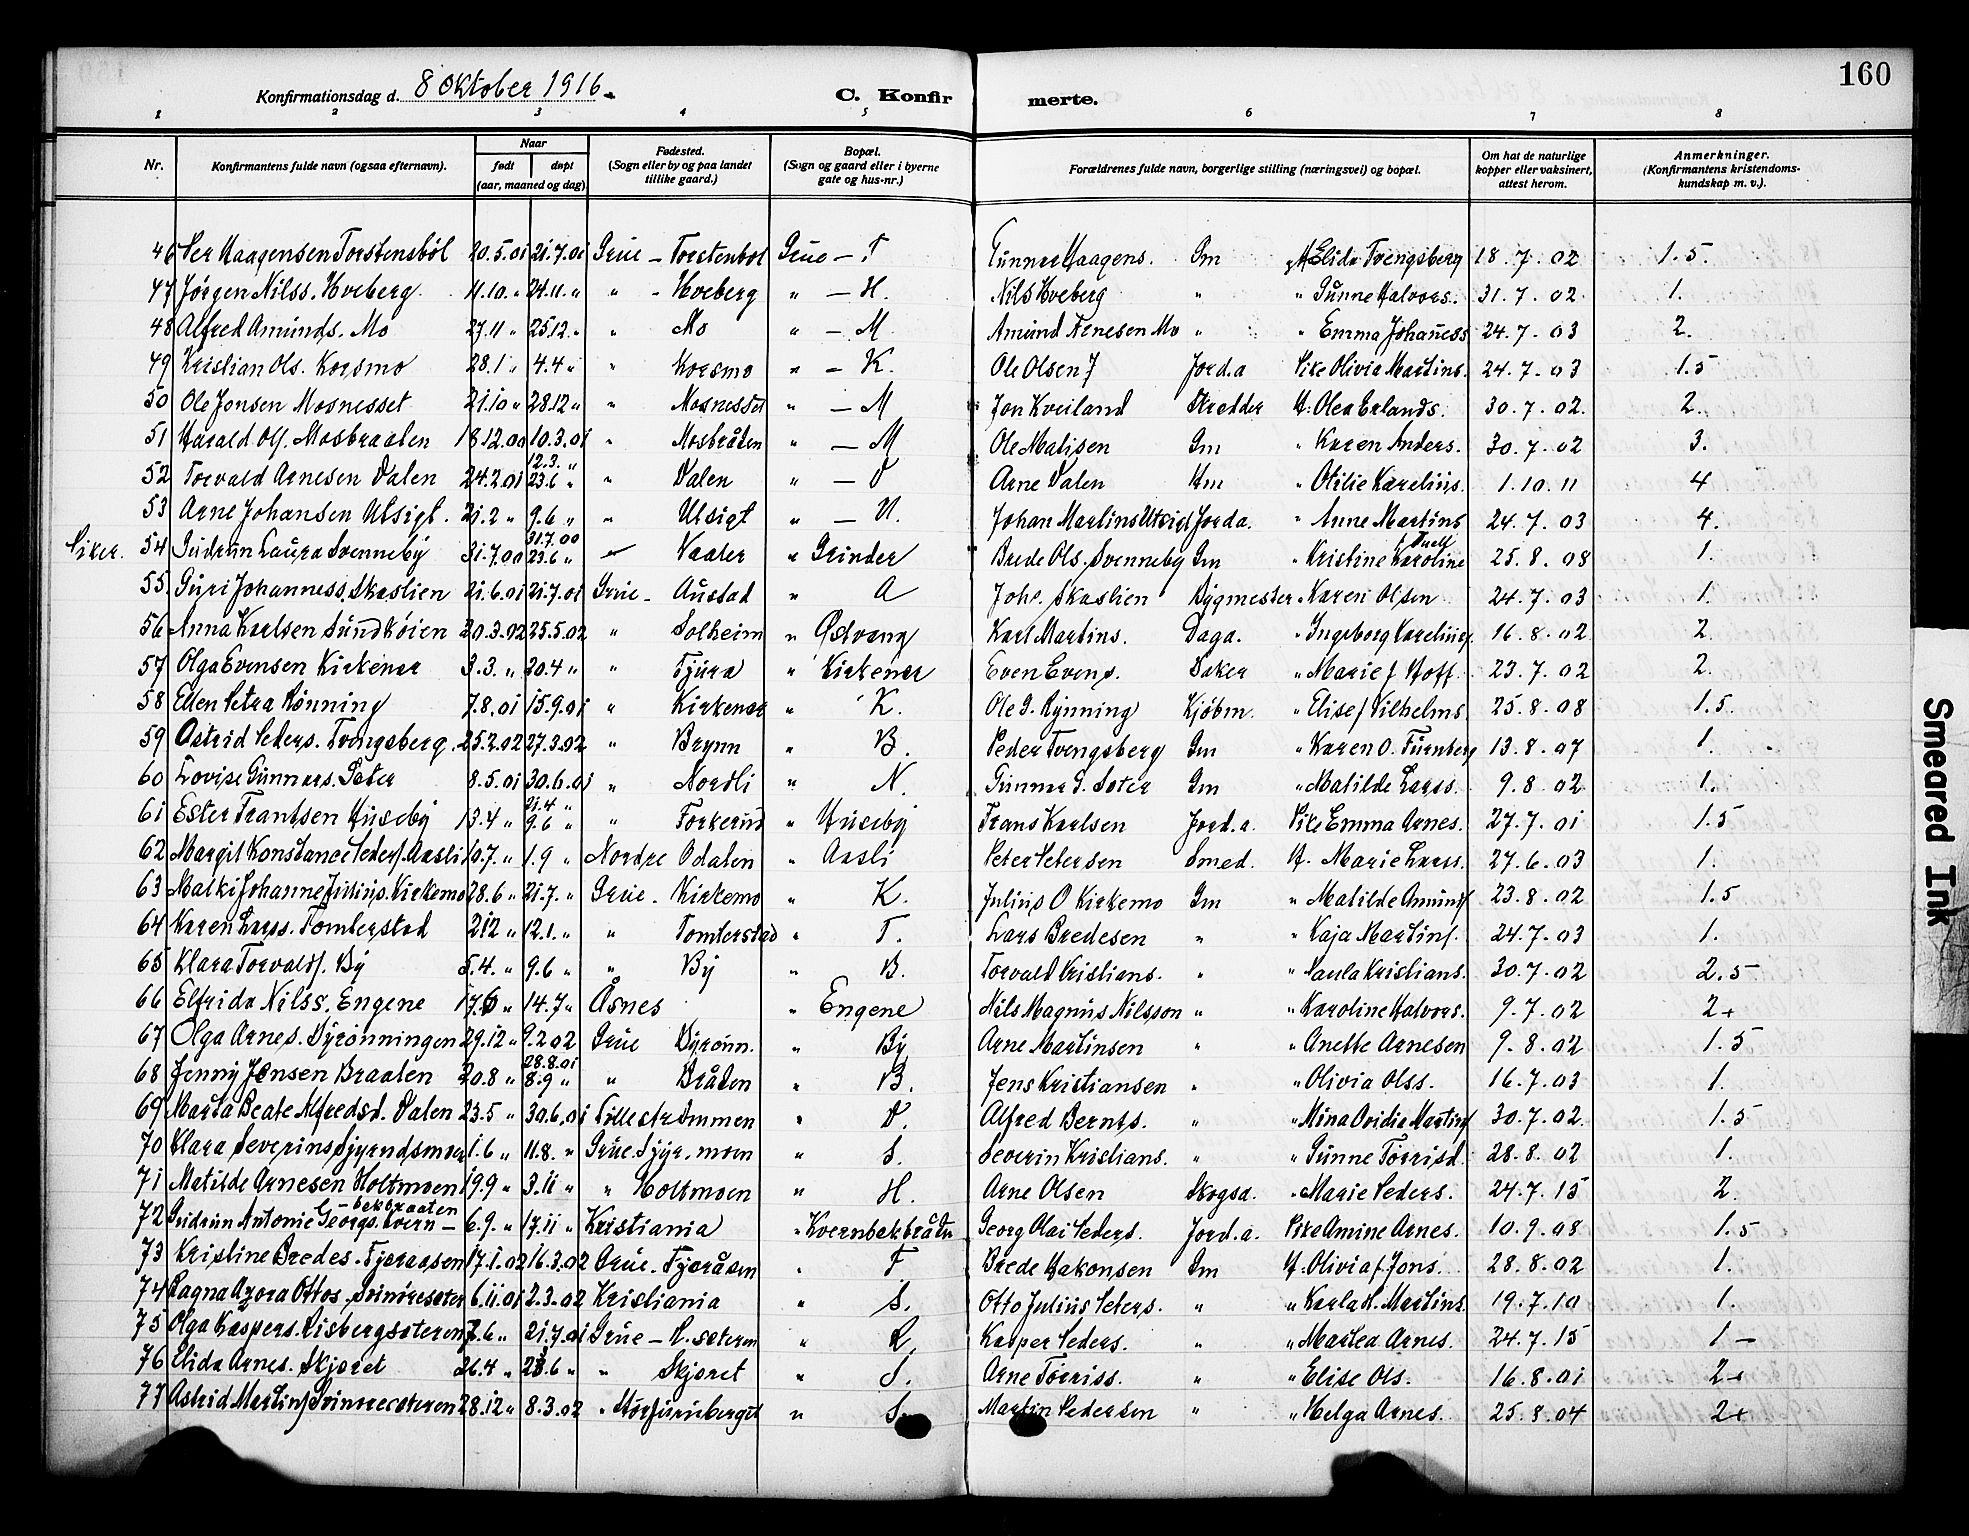 160
Konfirmationsdag d. 8 Oktober 1916.
C. Konfirmerte.
1 2 3 4 5 6 7 8
Nr. Konfirmantens fulde navn (ogsaa efternavn). Naar født døpt (aar, maaned og dag) Fødested. (Sogn eller by og paa landet tillike gaard.) Bopæl. (Sogn og gaard eller i byerne gate og hus-nr.) Forældrenes fulde navn, borgerlige stilling (næringsvei) og bopæl. Om hat de naturlige kopper eller vaksinert, attest herom. Anmerkninger. (Konfirmantens kristendomskundskap m. v.).
46 Per Haagensen Torstensböl 20.5.01 21.7.01 Grue – Torstenbol Grue – T Gunnar Haagens. Gm H Elida Tvengsberg 18.7.02 1.5.
47 Jørgen Nilss. Hveberg. 11.10. " 24.11. " " - Hveberg " – H. Nils Hveberg " " Gunne Halvors. 31.7.02 1.
48 Alfred Amunds. Mo 27.11 " 25.12. " " Mo " – M. Amund Arnesen Mo " " Emma Johaness 24.7.03 2.
49 Kristian Ols. Korsmo 28.1 " 4.4 " " Korsmo " – K. Ole Olsen Jord.a Pike Olivia Martins. 24.7.03 1.5
50 Ole Jonsen Mosnesset 21.10 " 28.12 " " Mosnesset " – M Jon Kveiland Skredder H. Olea Erlands. 30.7.02. 2.
51 Harald Ols. Mosbraaten 18.12.00 10.3.01 " Mosbråten " – M Ole Matisen Gm " Karen Anders. 30.7.02 3.
52 Torvald Arnesen Dalen 24.2.01 12.3. " 23.6 " " Dalen " – D Arne Dalen Hm " Otilie Karelius. 1.10.11 4
53 Arne Johansen Utsigt. 21.2 " 9.6 " " Utsigt " – U. Johan Martins Utsigt Jorda. " Anne Martins 24.7.03 4.
Piker. 54 Gudrun Laura Svenneby 31.7.00 31.7.00 23.6 " – Vaaler " Grinder Brede Ols. Svenneby Gm " Kristine Karoline 25.8.08 1.
55. Guri Johanness. Skaslien 21.6.01 21.7.01 Grue – Austad " A Johs. Skaslien Bygmester " Karen Olsen 24.7.03 1.
56 Anna Karlsen Sundköien 30.3.02 25.5.02 " Solheim " Østvang Karl Martins. Daga. " Ingeborg Karelius. 16.8.02 2.
57 Olga Evensen Kirkenær 3.3. " 20.4 " " Tjura " Kirkenær Even Evens. Baker " Marie f Hoff. 23.7.02 2.
58 Ellen Petra Rönning 7.8.01 15.9.01 " Kirkenær " K. Ole G. Rønning Kjöbm. " Elise f Vilhelms. 25.8.08 1.5.
59 Astrid Peders. Tvengsberg. 25.2.02 27.3.02 " Brynn " B. Peder Tvengsberg Gm " Karen O. Furuberg 13.8.07 1.
60 Lovise Gunnars. Sater 8.5.01 30.6.01 " Nordli " N. Gunnar G. Sater Gm " Matilde Larss. 9.8.02 1.
61 Ester Frantsen Huseby 13.4 " 21.4 " 9.6 " " Torkerud " Huseby Frans Karlsen Jord.a. Pike Emma Arnes. 27.7.01 1.5
62 Margit Konstance Peders. Aasli 10.7. " 1.9 " Nordre Odalen " Aasli Peter Petersen Smed. H. Marie Larss. 27.6.03 1.
63 Malki Johanne Julius. Kirkemo 28.6 " 21.7. " Grue. Kirkemo " K. Julius O Kirkemo Gm " Matilde Amunds 23.8.02 1.5
64 Karen Larss. Tomterstad 2.12 " 12.1. " " Tomterstad " T. Lars Bredesen " " Kaja Martins. 24.7.03 1.
65 Klara Torvalds. By 5.4. " 9.6 " " By " B. Torvald Kristians. " " Paula Kristians. 30.7.02 2.5
66 Elfrida Nilss. Engene 17.6 " 14.7 " Åsnes " Engene Nils Magnus Nilsson " " Karoline Halvors. 9.7.02 2+
67 Olga Arnes. Byrønningen 29.12 " 9.2.02 Grue Byrønn. " By Arne Martinsen " " Anette Arnesen 9.8.02 1.5
68 Jenny Jensen Braaten 20.8 " 28.8.01 8.9 " " Bråten " B. Jens Kristiansen " " Olivia Olss. 16.7.03 1.
69 Marta Beate Alfredsd. Dalen 23.5 " 30.6.01 Lillestrømmen " D. Alfred Bernts. " " Mina Ovidia Martins 30.7.02. 1.5
70 Klara Severins Gjyrndsmoen 1.6 " 11.8. " Grue. Gjyr.moen " S. Severin Kristians. " " Gunne Torrisd. 28.8.02 1.
71 Matilde Arnesen Holtmoen 19.9 " 3.11 " " Holtmoen " H. Arne Olsen Skogsa. " Marie Peders. 24.7.15 2.
72 Gudrun Antonie Georgs. Kvern – bekbraaten 6.9. " 17.11 " Kristiania " Kvernbekbråtn Georg Olai Peders. Jord.a. Pike Amine Arnes. 10.9.08 1.5
73 Kristine Bredes. Tjeraasen 17.1.02 16.3.02 Grue. Tjeråsen " T Brede Hakonsen Gm H. Olivia f. Jons. 28.8.02 1.
74 Ragna Azora Ottos. Svinøresæter 6.11.01 2.3.02 Kristiania " S. Otto Julius Peters. " " Karla H. Martins. 19.7.10 1.
75 Olga Kaspers. Risbergsæteren 7.6 " 21.7.01 Grue – R. sæteren " R. Kasper Peders. " " Martea Arnes. 24.7.15 1 –
76 Elida Arnes. Skjæret 26.4 " 23.6 " " Skjæret " S. Arne Torriss. " " Elise Ols. 16.8.01 2+
77 Astrid Martins Svinøresæteren 28.12 " 8.3.02 " Storfuruberget " S. Martin Pedersen " " Helga Arnes. 25.8.04 2+
Smeared Ink